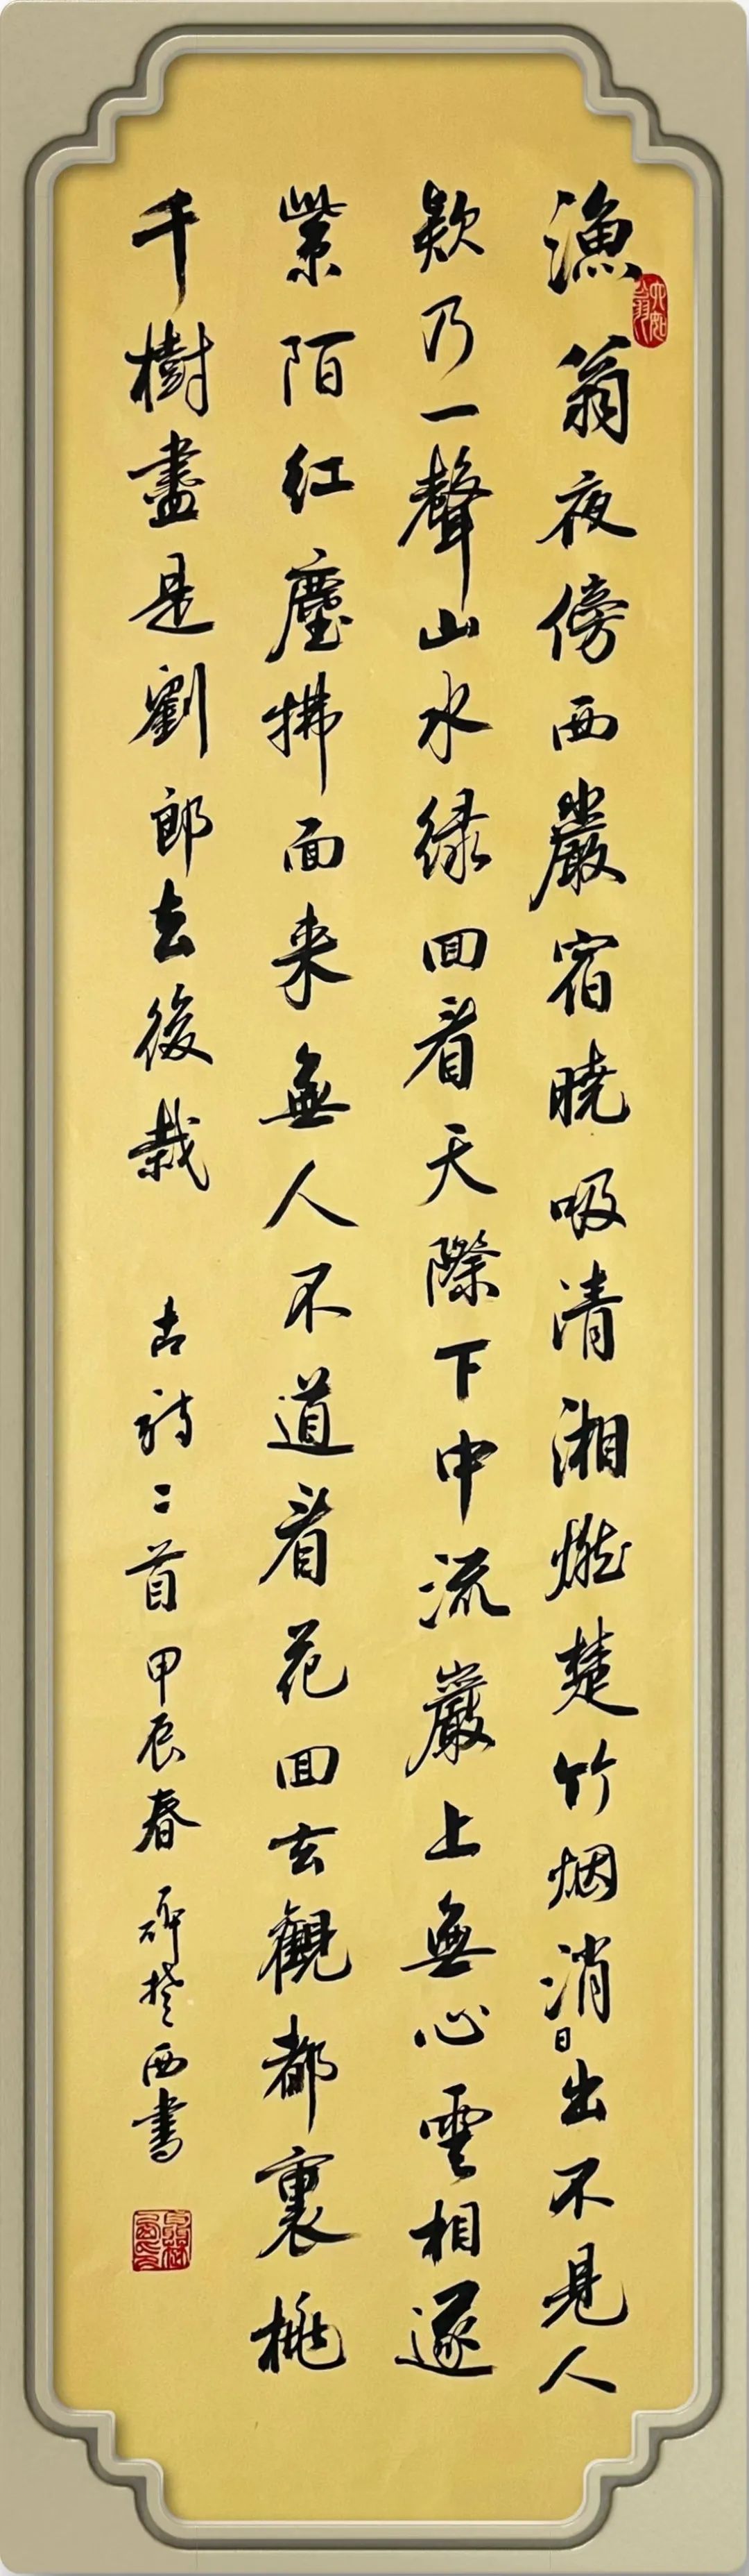 漁翁夜傍西巖宿曉吸清湘燃楚竹烟消日出不見人
欸乃一聲山水緑回看天際下中流巖上無心雲相逐
紫陌红塵拂面来無人不道看花回玄觀都裏桃
千樹盡是劉郎去後栽
古詩二首甲辰春
西書